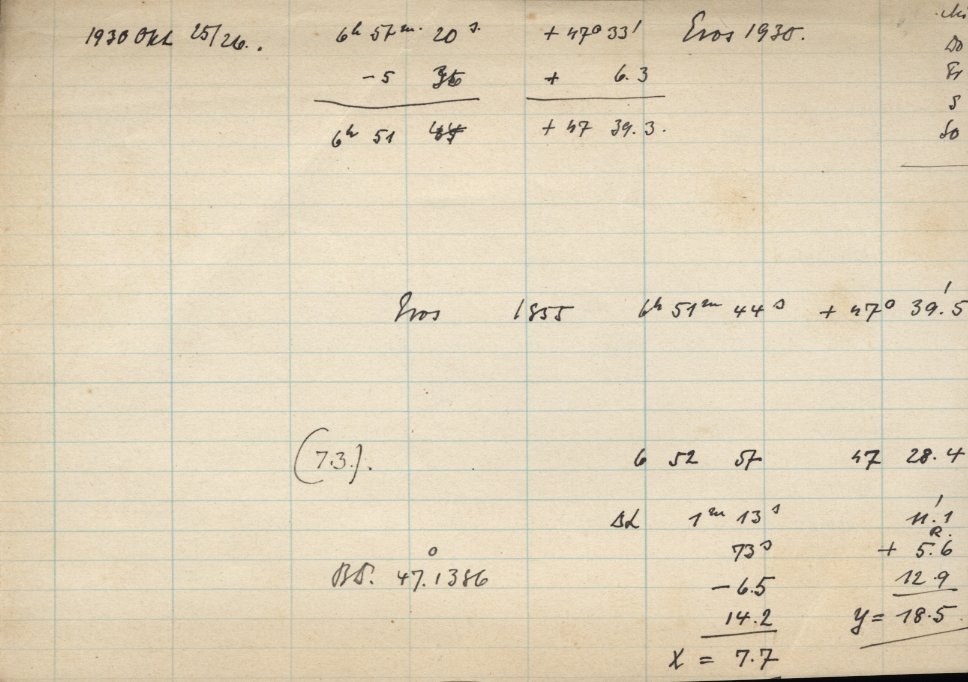 1930 Okt 25/26. 6h 57m. 20s. +47° 33' Eros 1930.
-5 36 + 6.3
6h 51 44 +47 39.3.
Do
Fr
S
So
Eros 1855 6h 51m 44s +47° 39.'5
(7.3). 6 52 57 47 28.4
Δα 1m 13s 11.'1
73s + 5.6
BD. 47.°1386 -6.5 12.9
14.2 y = 18.5
X = 7.7